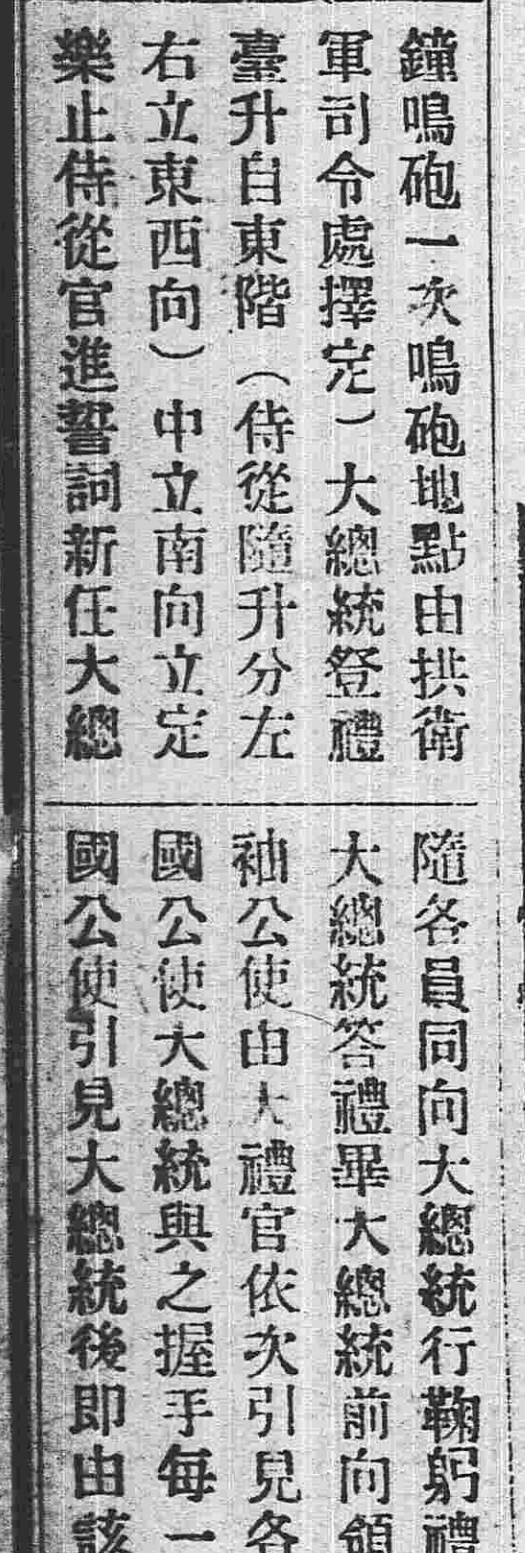 鐘鳴砲一次鳴砲地點由拱衛
軍司令處擇定）大總統登禮
臺升自東階（侍從隨升分左
右立東西向）中立南向立定
樂止侍從官進誓詞新任大總
隨各員同向大總統行鞠躬禮
大總統答禮畢大總統前向領
袖公使由大禮官依次引見各
國公使大總統與之握手每一
國公使引見大總統後即由該